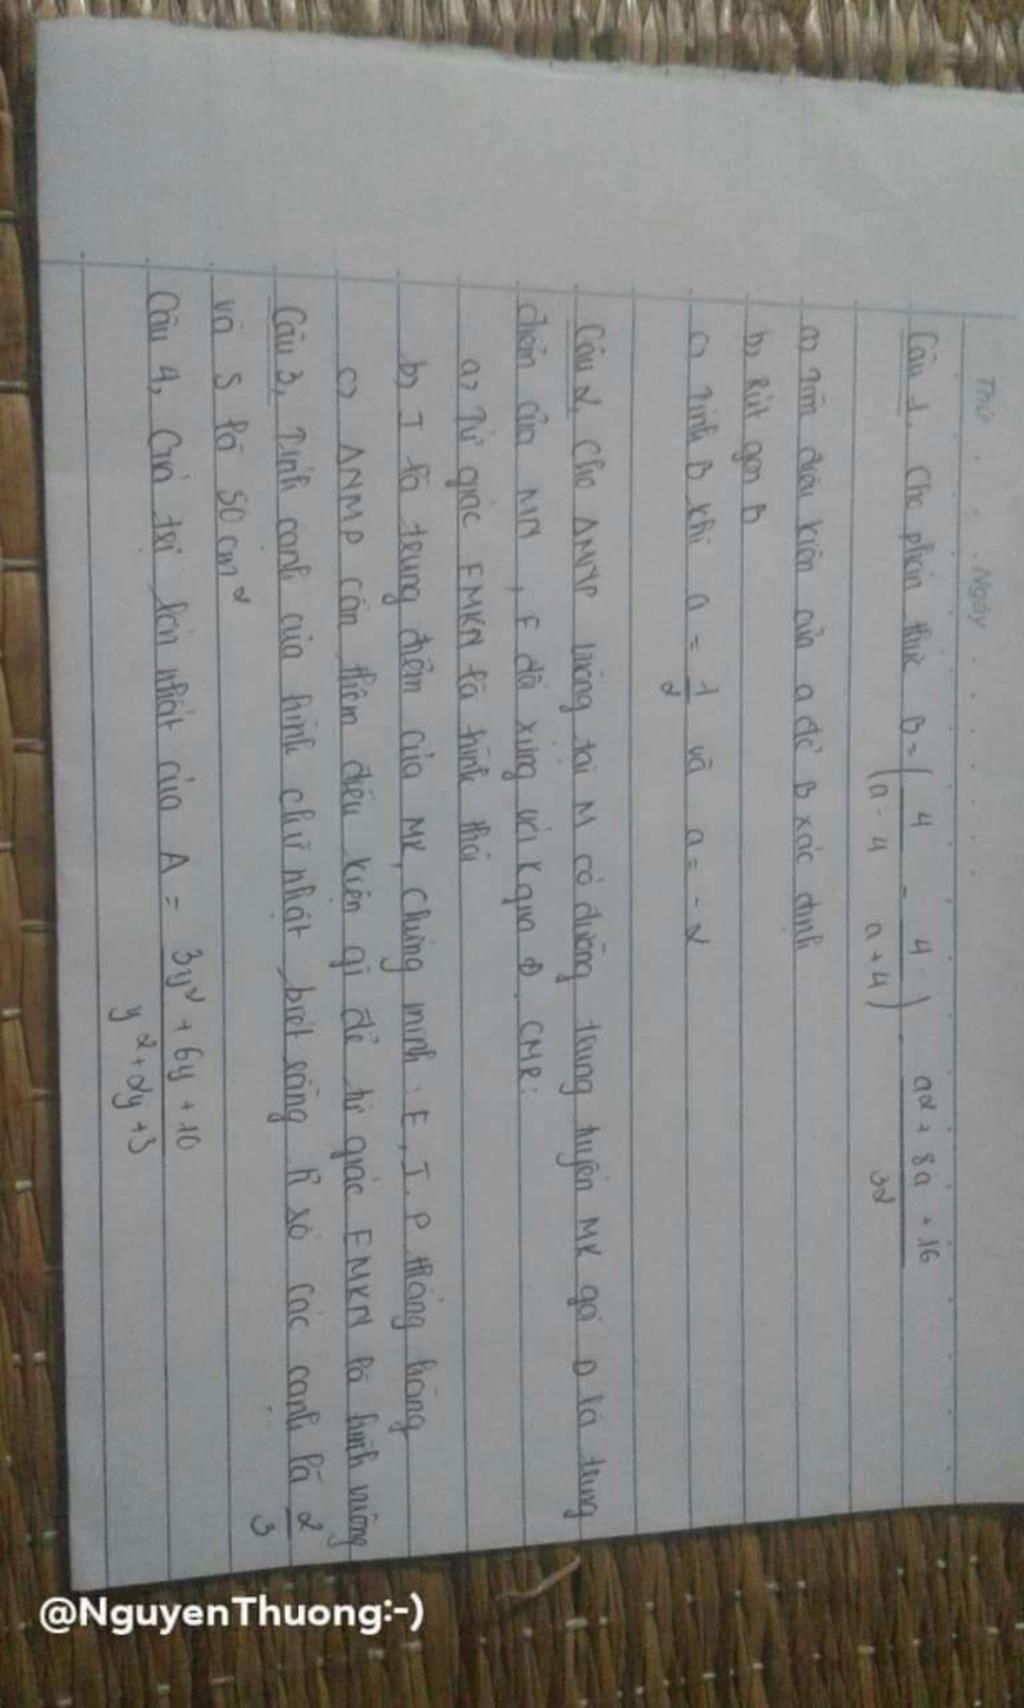 Thứ . . . Ngày . . . . . . .
Câu 1, Cho phân thức B = ( 4/(a - 4) - 4/(a + 4) ) . (a2 + 8a + 16)/32
a, Tìm điều kiện của a để B xác định
b, Rút gọn B
c, Tính B khi a = 1/2 và a = - 2
Câu 2, Cho ΔMNP vuông tại M có đường trung tuyến MK gọi D là trung
điểm của MN , E đối xứng với K qua D. CMR:
a, Tứ giác EMKN là hình thoi
b, I là trung điểm của MK, Chứng minh: E, I, P thẳng hàng
c, ΔNMP cần thêm điều kiện gì để tứ giác EMKN là hình vuông
Câu 3, Tính cạnh của hình chữ nhật biết rằng tỉ số các cạnh là 2/3
và S là 50 cm²
Câu 4, Giá trị lớn nhất của A = (3y² + 6y + 10)/(y² + 2y + 3)
@NguyenThuong:-)